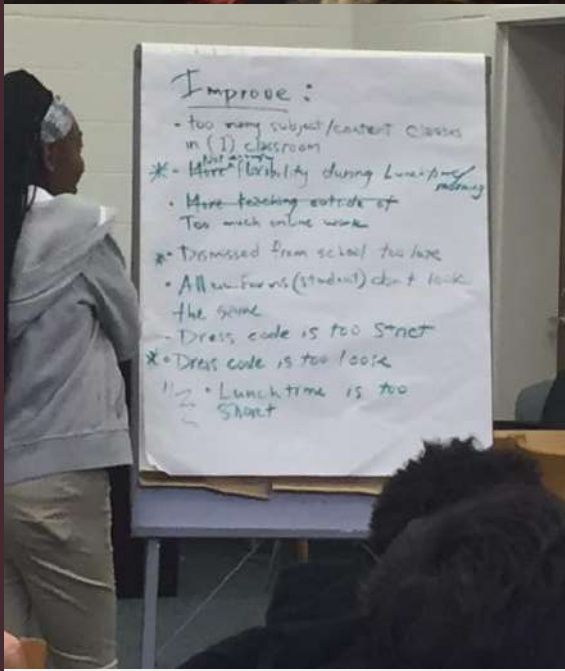 Improve :
• too many subject/content classes
in (1) classroom
Not enough
* • More flexibility during Lunch/
morning
• More teaching outside of
Too much online work
* • Dismissed from school too late
• All uniforms (student) don't look
the same
- Dress code is too strict
* • Dress code is too loose
• Lunch time is too
short